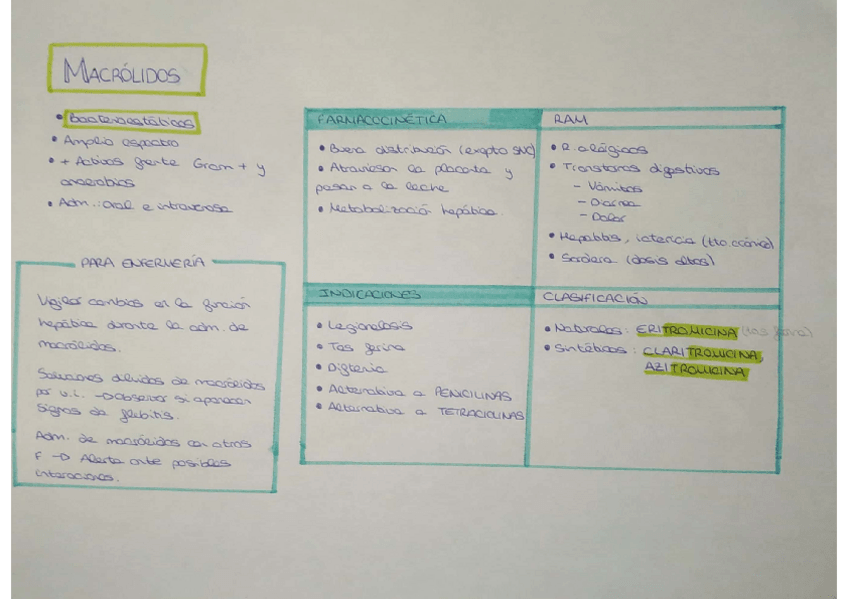 MACRÓLIDOS
• Bacteriostáticos
• Amplio espectro
• + Activos frente Gram + y
anaerobios
• Adm.: oral e intravenosa
PARA ENFERMERÍA
Vigilar cambios en la función
hepática durante la adm. de
macrólidos.
Soluciones diluidas de macrólidos
por v.i. → Observar si aparecen
signos de flebitis.
Adm. de macrólidos con otros
F → Alerta ante posibles
interacciones.
FARMACOCINÉTICA
• Buena distribución (excepto SNC)
• Atraviesan la placenta y
pasan a la leche
• Metabolización hepática.
RAM
• R. alérgicas
• Transtornos digestivos
- Vómitos
- Diarrea
- Dolor
• Hepatitis, ictericia (tto. crónico)
• Sordera (dosis altas)
INDICACIONES
• Legionelosis
• Tos ferina
• Difteria
• Alternativa a PENICILINAS
• Alternativa a TETRACICLINAS
CLASIFICACIÓN
• Naturales: ERITROMICINA (tos ferina)
• Sintéticos: CLARITROMICINA
AZITROMICINA